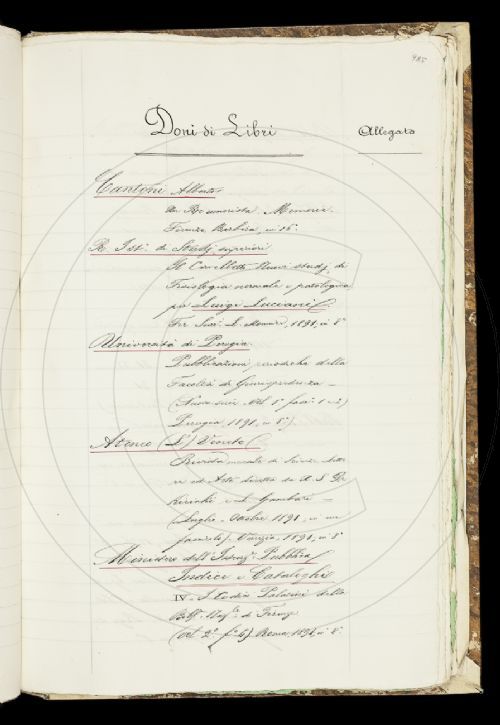 985
Doni di Libri
Allegato
Cantoni Alberto
Un Memoria
Firenze Barbèra, in 16°
R. Ist° di Studj superiori
Il Cervelletto. Nuovi studj di
Fisiologia normale e patologica
per Luigi Luciani
Fir. Suc. Le Monnier, 1891, in 8°
Università di Perugia
Pubblicazioni periodiche della
Facoltà di Giurisprudenza
(Nuova serie Vol 1° fasc. 1 e 2)
Perugia, 1891, in 8°)
Ateneo (L') Veneto
Rivista mensile di Scienze, Lette-
re ed Arti diretta da A. S. De
Kiriaki e L. Gambari
(Luglio - Ottobre 1891, in un
fascicolo). Venezia, 1891, in 8°
Ministero dell'Istruz° Pubblica
Indici e Cataloghi
IV. I Codici Palatini della
di Firenze
(Vol. 2° f° ) Roma 1891, in 8°